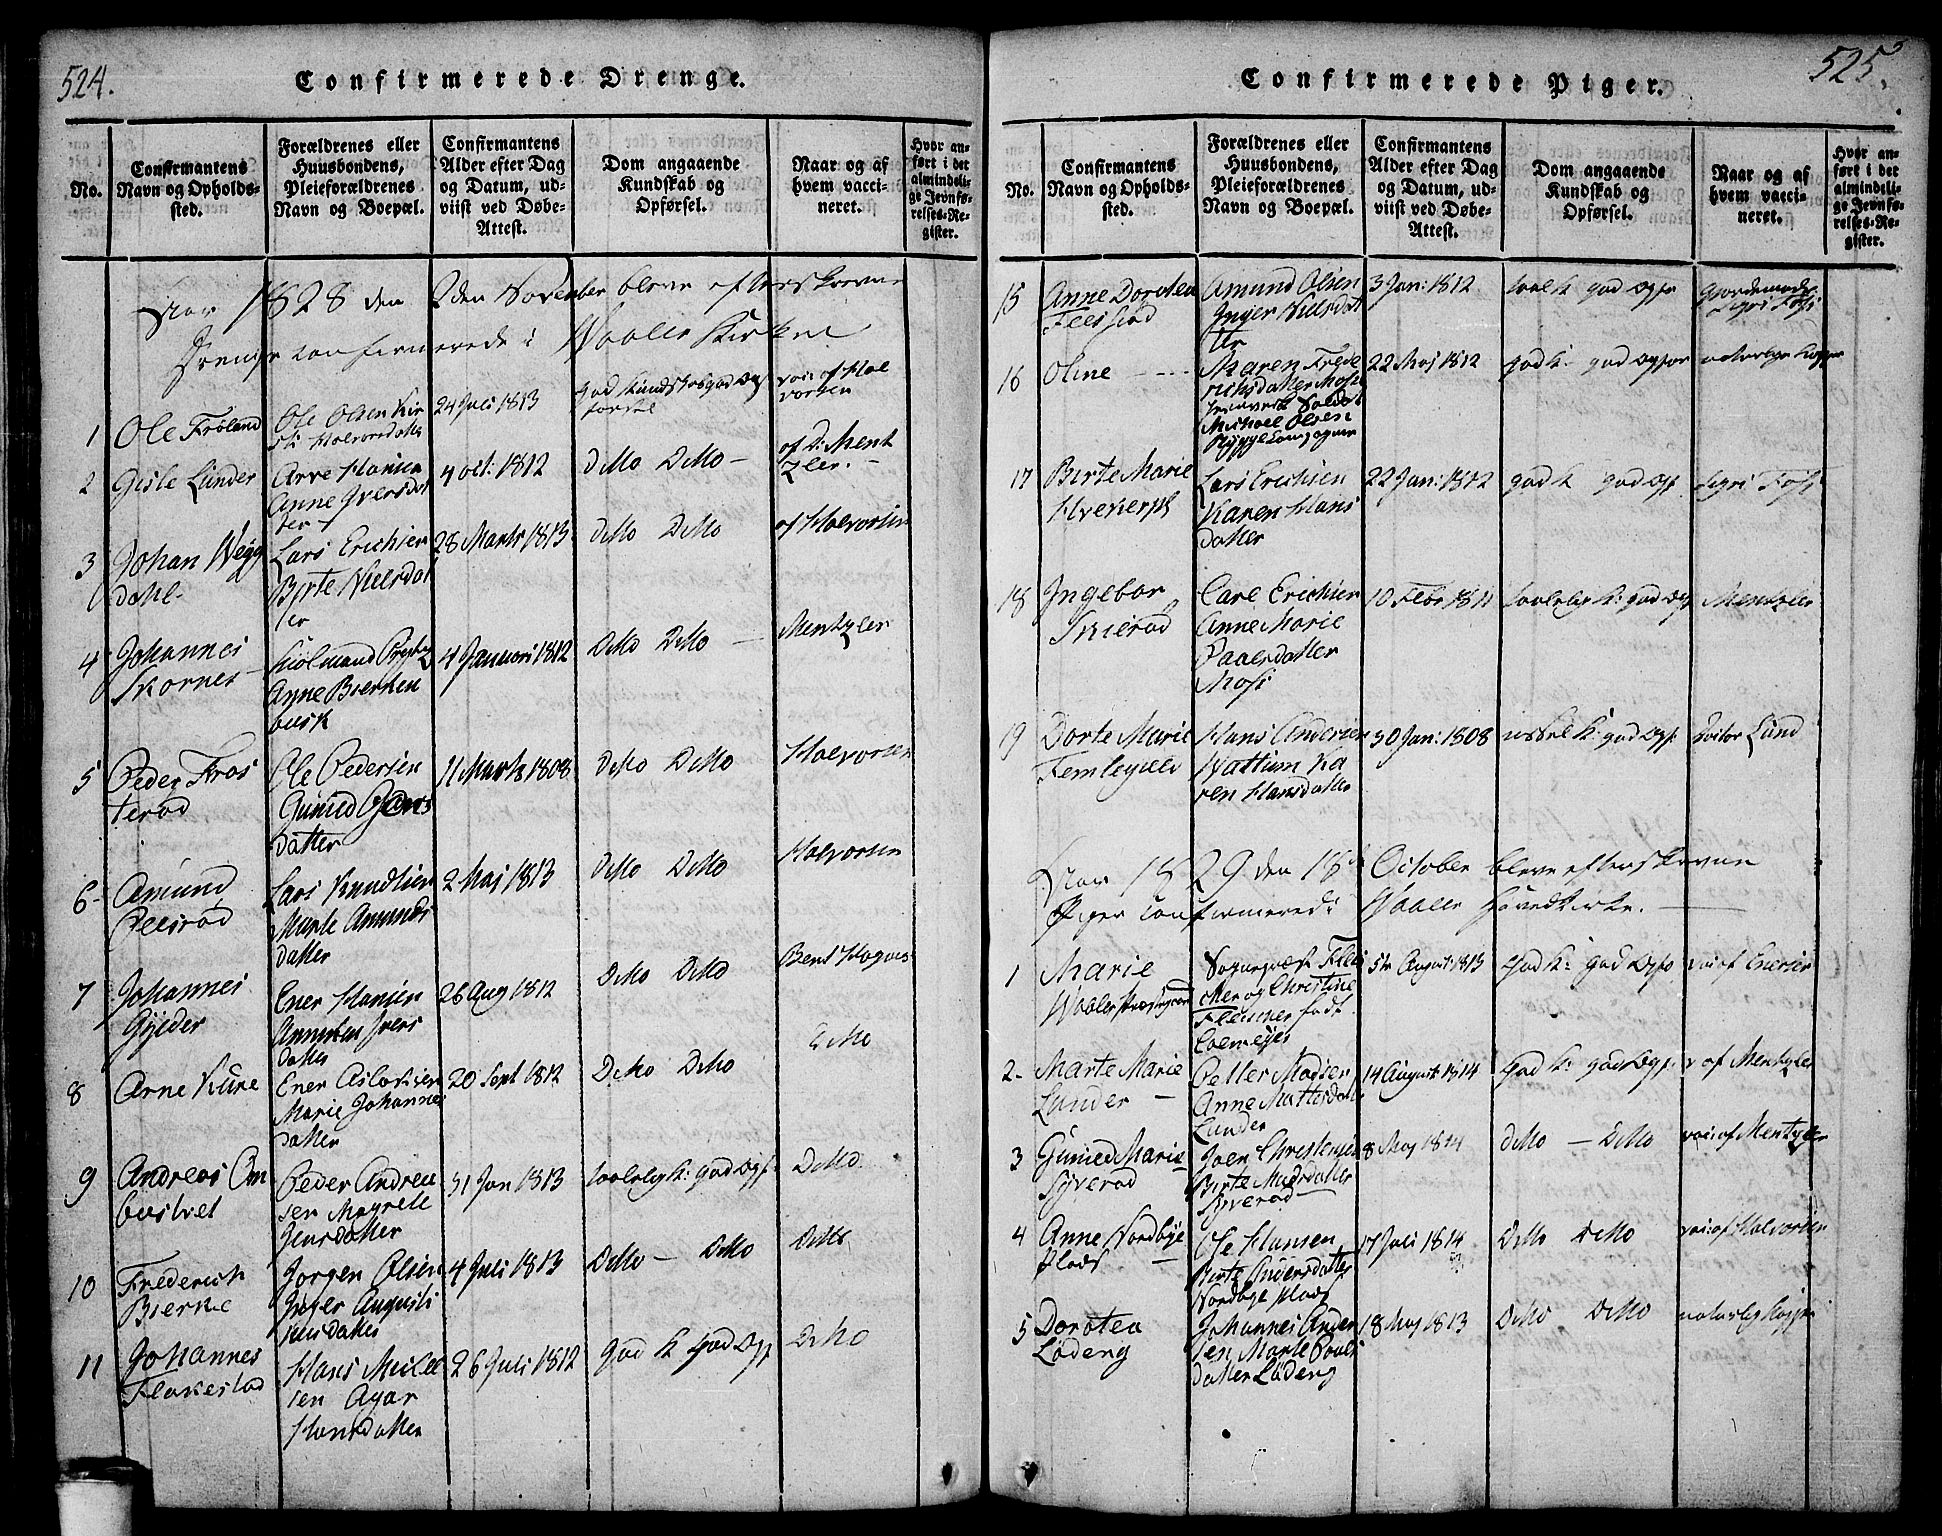 524.
Confirmerede Drenge.
No.
Confirmantens
Navn og Opholds-
sted.
Forældrenes eller
Huusbondens,
Pleieforældrenes
Navn og Boepæl.
Confirmantens
Alder efter Dag
og Datum, ud-
viist ved Døbe-
Attest.
Dom angaaende
Kundskab og
Opførsel.
Naar og af
hvem vacci-
neret.
Hvor an-
ført i det
almindeli-
ge Jevnfø-
relses-Re-
gister.
Aar 1828 den 2den November bleve efterskrevne
Drenge confirmerede i Waaler Kirke
1
Ole Froland
Ole Olsen Kir
sti Halvorsdatter
24 Juli 1813
god Kundskab god Op
førsel
vac: af Hal
vorsen
2
Gisle Lunder
Arve Hansen
Anne Iversdat
ter
4 oct: 1812
Ditto Ditto
af D: Ment
zler.
3
Johan Wegg
dahl
Lars Erichsen
Birte Nielsdat
ter
28 Marts 1813
Ditto Ditto
af Halvorsen
4
Johannes
Skornes
Anne Bierken
busk
4 Januari 1812
Ditto Ditto
Mentzler
5
Peder Fros
terød
Ole Pedersen
Gunild
datter
11 Marts 1808
Ditto Ditto
Halvorsen
6
Amund
Peesrød
Lars Knudsen
Marte Amunds
datter
2 Maj 1813
Ditto Ditto
Halvorsen
7
Johannes
Gjeder
Ener Hansen
Ivers
datter
26 Aug 1812
Ditto Ditto
Berit
8
Arne Kure
Ener Aslaksen
Marie Johannes
datter
20 Sept 1812
Ditto Ditto
Ditto
9
Andreas Om
bustvet
Peder Andrea
sen Magrete
Jensdatter
31 Jan 1813
taalelig K: god Opf:
Ditto
10
Frederich
Bierke
Jørgen Olsen
Inger Augusti
nusdatter
4 Juli 1813
Ditto Ditto
Ditto
11
Johannes
Flakestad
Hans Mikkel
sen Agar
Hansdatter
26 Juli 1812
god K god Opf
Ditto
525.
Confirmerede Piger.
No.
Confirmantens
Navn og Opholds-
sted.
Forældrenes eller
Huusbondens,
Pleieforældrenes
Navn og Boepæl.
Confirmantens
Alder efter Dag
og Datum, ud-
viist ved Døbe-
Attest.
Dom angaaende
Kundskab og
Opførsel.
Naar og af
hvem vacci-
neret.
Hvor an-
ført i det
almindeli-
ge Jevnfø-
relses-Re-
gister.
15
Anne Dorotea
Amund Olsen
Inger Nielsdat
ter
3 Jan: 1812
taal K god Opf
Siri Foss
16
Oline
Maren Frede
richsdatter Moss
Soldat
Michael Olsen
Rygge Compagnie
22 Maj 1812
god K: god Opfør
naturlige Kopper
17
Birte Marie
Lars Erichsen
Karen Hans
datter
22 Jan: 1812
god K god Opf
Siri Foss
18
Ingebor
Skierød
Carl Erichsen
Anne Marie
Paalsdatter
Moss
10 Febr 1811
taalelig K: god Opf
Mentzler
19
Dorte Marie
Hans Andersen
Wattum Ka
ren Hansdatter
30 Jan: 1808
K: god Opf:
Doctor Lund
Aar 1829 den 18de October bleve efterskrevne
Piger confirmerede i Waaler Hovedkirke.
1
Marie
Waaler Præstegaard
Sognepræst Fleis
cher og Christine
Fleischer født
5te August 1813
God K: god Opf
vac: af Enersen
2
Marte Marie
Lunder
Petter Madsen
Anne Mattisdatter
Lunder
14 August 1814
God K: god Opf:
v af Mentzler
3
Gunild Marie
Syverød
Joen Christensen
Birte Madsdatter
Syverød
8 Maj 1814
Ditto Ditto
vac: af Mentzler
4
Anne Nordbye
Plads
Ole Hansen
Birte Andersdatter
Nordbye Plads
17 Juli 1814
Ditto Ditto
vac: af Halvorsen
5
Dorotea
Lødeng
Johannes Ander
sen Marte Pouls
datter Lødeng
18 Maj 1813
Ditto Ditto
naturlig Kopper